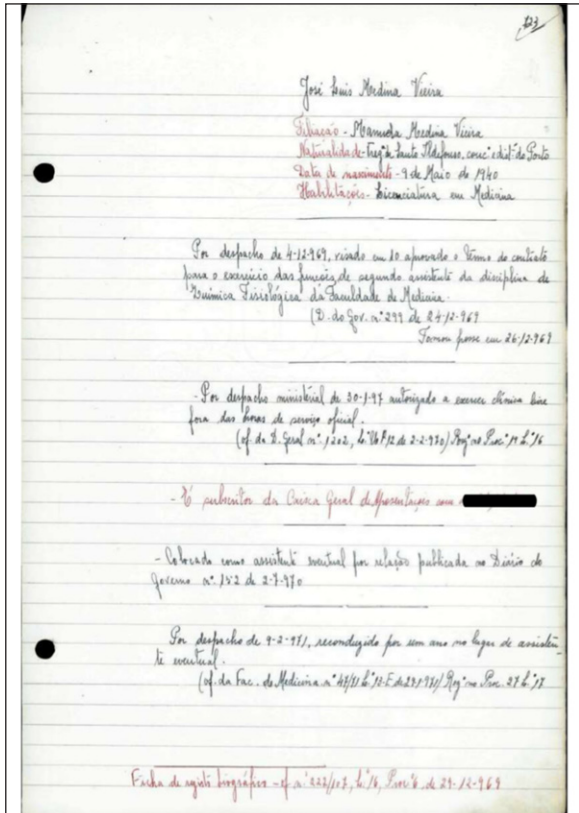 123
José Luis Medina Vieira
Filiação - Manuela Medina Vieira
Naturalidade - Freg.ª de Santo Ildefonso, conc.º e dist.º do Porto
Data de nascimento - 9 de Maio de 1940
Habilitações - Licenciatura em Medicina
Por despacho de 4-12-969, visado em 10 aprovado o termo do contrato
para o exercício das funções de segundo assistente da disciplina de
"Química Fisiológica" da Faculdade de Medicina.
(D. do Gov. nº 299 de 24-12-969
Tomou posse em 26-12-969
- Por despacho ministerial de 30-1-97 autorizado a exercer clínica livre
fora das horas de serviço oficial.
(of. da D. Geral nº 1202, de 2-2-970) Regº no Proc.º 19 L.º 16
- É subscritor da Caixa Geral de Aposentações com
- Colocado como assistente eventual por relação publicada no Diário do
Governo nº 152 de 2-7-970
Por despacho de 9-2-971, reconduzido por um ano no lugar de assisten-
te eventual.
(of. da Fac. de Medicina nº 47/71 Regº no Proc. 27 L.º 17
Ficha de registo biográfico - of. nº 222/107, L.º 16, Proc.º 6, de 29-12-969